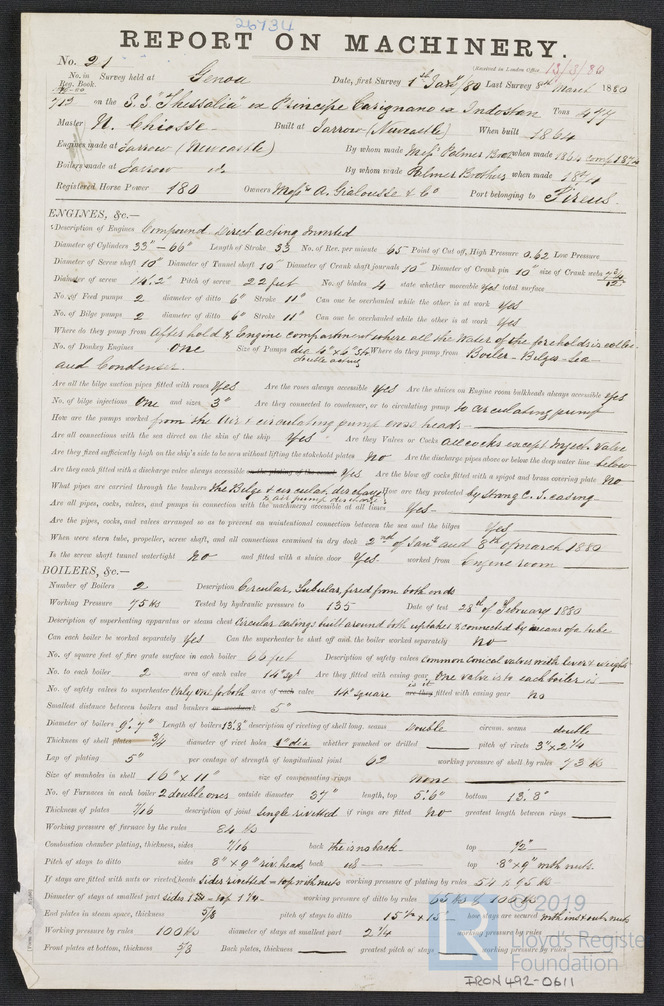 26734
REPORT ON MACHINERY.
No. 21 (Received in London Office 13/3/80
No. in Reg. Book. Survey held at Genoa Date, first Survey 1st Jany/80 Last Survey 8th March 1880
712 on the S.S. "Thessalia" ex Principe Carignano ex Indostan Tons 477
Master N. Chiosse Built at Jarrow (Newcastle) When built 1864
Engines made at Jarrow (Newcastle) By whom made Messrs Palmer Bros when made 1864 comp 1874
Boilers made at Jarrow id. By whom made Palmer Brothers when made 1874
Registered Horse Power 180 Owners Messrs A. Gialousse & Co Port belonging to Pireus.
ENGINES, &c.—
Description of Engines Compound Direct acting Inverted
Diameter of Cylinders 33" — 66" Length of Stroke 33 No. of Rev. per minute 65 Point of Cut off, High Pressure 0.62 Low Pressure
Diameter of Screw shaft 10" Diameter of Tunnel shaft 10" Diameter of Crank shaft journals 10" Diameter of Crank pin 10" size of Crank webs
Diameter of screw 14'.2" Pitch of screw 22 feet No. of blades 4 state whether moveable yes total surface
No. of Feed pumps 2 diameter of ditto 6" Stroke 11" Can one be overhauled while the other is at work Yes
No. of Bilge pumps 2 diameter of ditto 6" Stroke 11" Can one be overhauled while the other is at work Yes
Where do they pump from After hold & Engine compartment where all the water of the foreholds is
No. of Donkey Engines One Size of Pumps dia 4" x 6" St. double acting Where do they pump from Boiler - Bilges - Sea
and Condenser.
Are all the bilge suction pipes fitted with roses Yes Are the roses always accessible Yes Are the sluices on Engine room bulkheads always accessible Yes
No. of bilge injections One and sizes 3" Are they connected to condenser, or to circulating pump to circulating pump
How are the pumps worked from the Air & circulating pump cross heads
Are all connections with the sea direct on the skin of the ship Yes Are they Valves or Cocks all cocks except Inject. Valve
Are they fixed sufficiently high on the ship's side to be seen without lifting the stokehold plates No Are the discharge pipes above or below the deep water line below
Are they each fitted with a discharge valve always accessible on the plating of the vessel Yes Are the blow off cocks fitted with a spigot and brass covering plate No
What pipes are carried through the bunkers the Bilge & circulat. discharge & air pump discharge How are they protected by Strong C. I. casing
Are all pipes, cocks, valves, and pumps in connection with the machinery accessible at all times Yes
Are the pipes, cocks, and valves arranged so as to prevent an unintentional connection between the sea and the bilges Yes
When were stern tube, propeller, screw shaft, and all connections examined in dry dock 2nd of Jany and 8th of march 1880
Is the screw shaft tunnel watertight No and fitted with a sluice door Yes worked from Engine room
BOILERS, &c.—
Number of Boilers 2 Description Circular, Tubular, fired from both ends
Working Pressure 75 lbs Tested by hydraulic pressure to 135 Date of test 28th of February 1880
Description of superheating apparatus or steam chest Circular casings built around both uptakes & connected by means of a tube
Can each boiler be worked separately Yes Can the superheater be shut off and the boiler worked separately No
No. of square feet of fire grate surface in each boiler 66 feet Description of safety valves common conical valves with lever & weight
No. to each boiler 2 area of each valve 14" sqr Are they fitted with easing gear One valve to each boiler is
No. of safety valves to superheater Only one for both area of each valve 14" square are they is it fitted with easing gear No
Smallest distance between boilers and bunkers or woodwork 5"
Diameter of boilers 9'.7" Length of boilers 13'.8" description of riveting of shell long. seams Double circum. seams double
Thickness of shell plates 3/4 diameter of rivet holes 1" dia whether punched or drilled pitch of rivets 3" x 2 1/4
Lap of plating 5" per centage of strength of longitudinal joint 62 working pressure of shell by rules 73 lbs
Size of manholes in shell 16" x 11" size of compensating rings none
No. of Furnaces in each boiler 2 double ones outside diameter 37" length, top 5'.6" bottom 13'.8"
Thickness of plates 7/16 description of joint single rivetted if rings are fitted No greatest length between rings
Working pressure of furnace by the rules 84 lbs
Combustion chamber plating, thickness, sides 7/16 back the is no back top 1/2"
Pitch of stays to ditto sides 8" x 9" riv. heads back us top 8" x 9" with nuts.
If stays are fitted with nuts or riveted heads sides rivetted = top with nuts working pressure of plating by rules 54 & 95 lbs
Diameter of stays at smallest part sides 1 3/8 = top 1 1/4 working pressure of ditto by rules 66 lbs & 106 lbs
End plates in steam space, thickness 5/8 pitch of stays to ditto 15 1/2 x 15 how stays are secured with ins & outs. nuts
Working pressure by rules 100 lbs diameter of stays at smallest part 2 1/4 working pressure by rules
Front plates at bottom, thickness 5/8 Back plates, thickness greatest pitch of stays working pressure by rules
© 2019
Lloyd's Register
Foundation
IRON492-0611